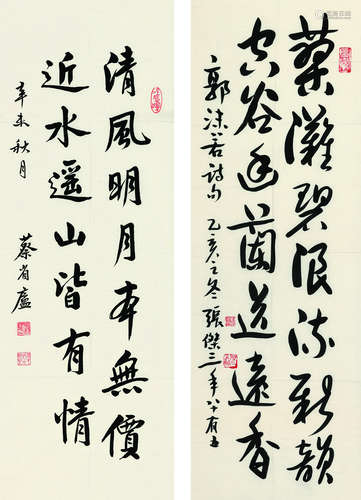 蔡灘碧浪流新韻
空谷幽蘭送遠香
郭沫若詩句 乙亥之冬 張傑三年八十有五
清風明月本無價
近水遙山皆有情
辛未秋月
蔡省廬